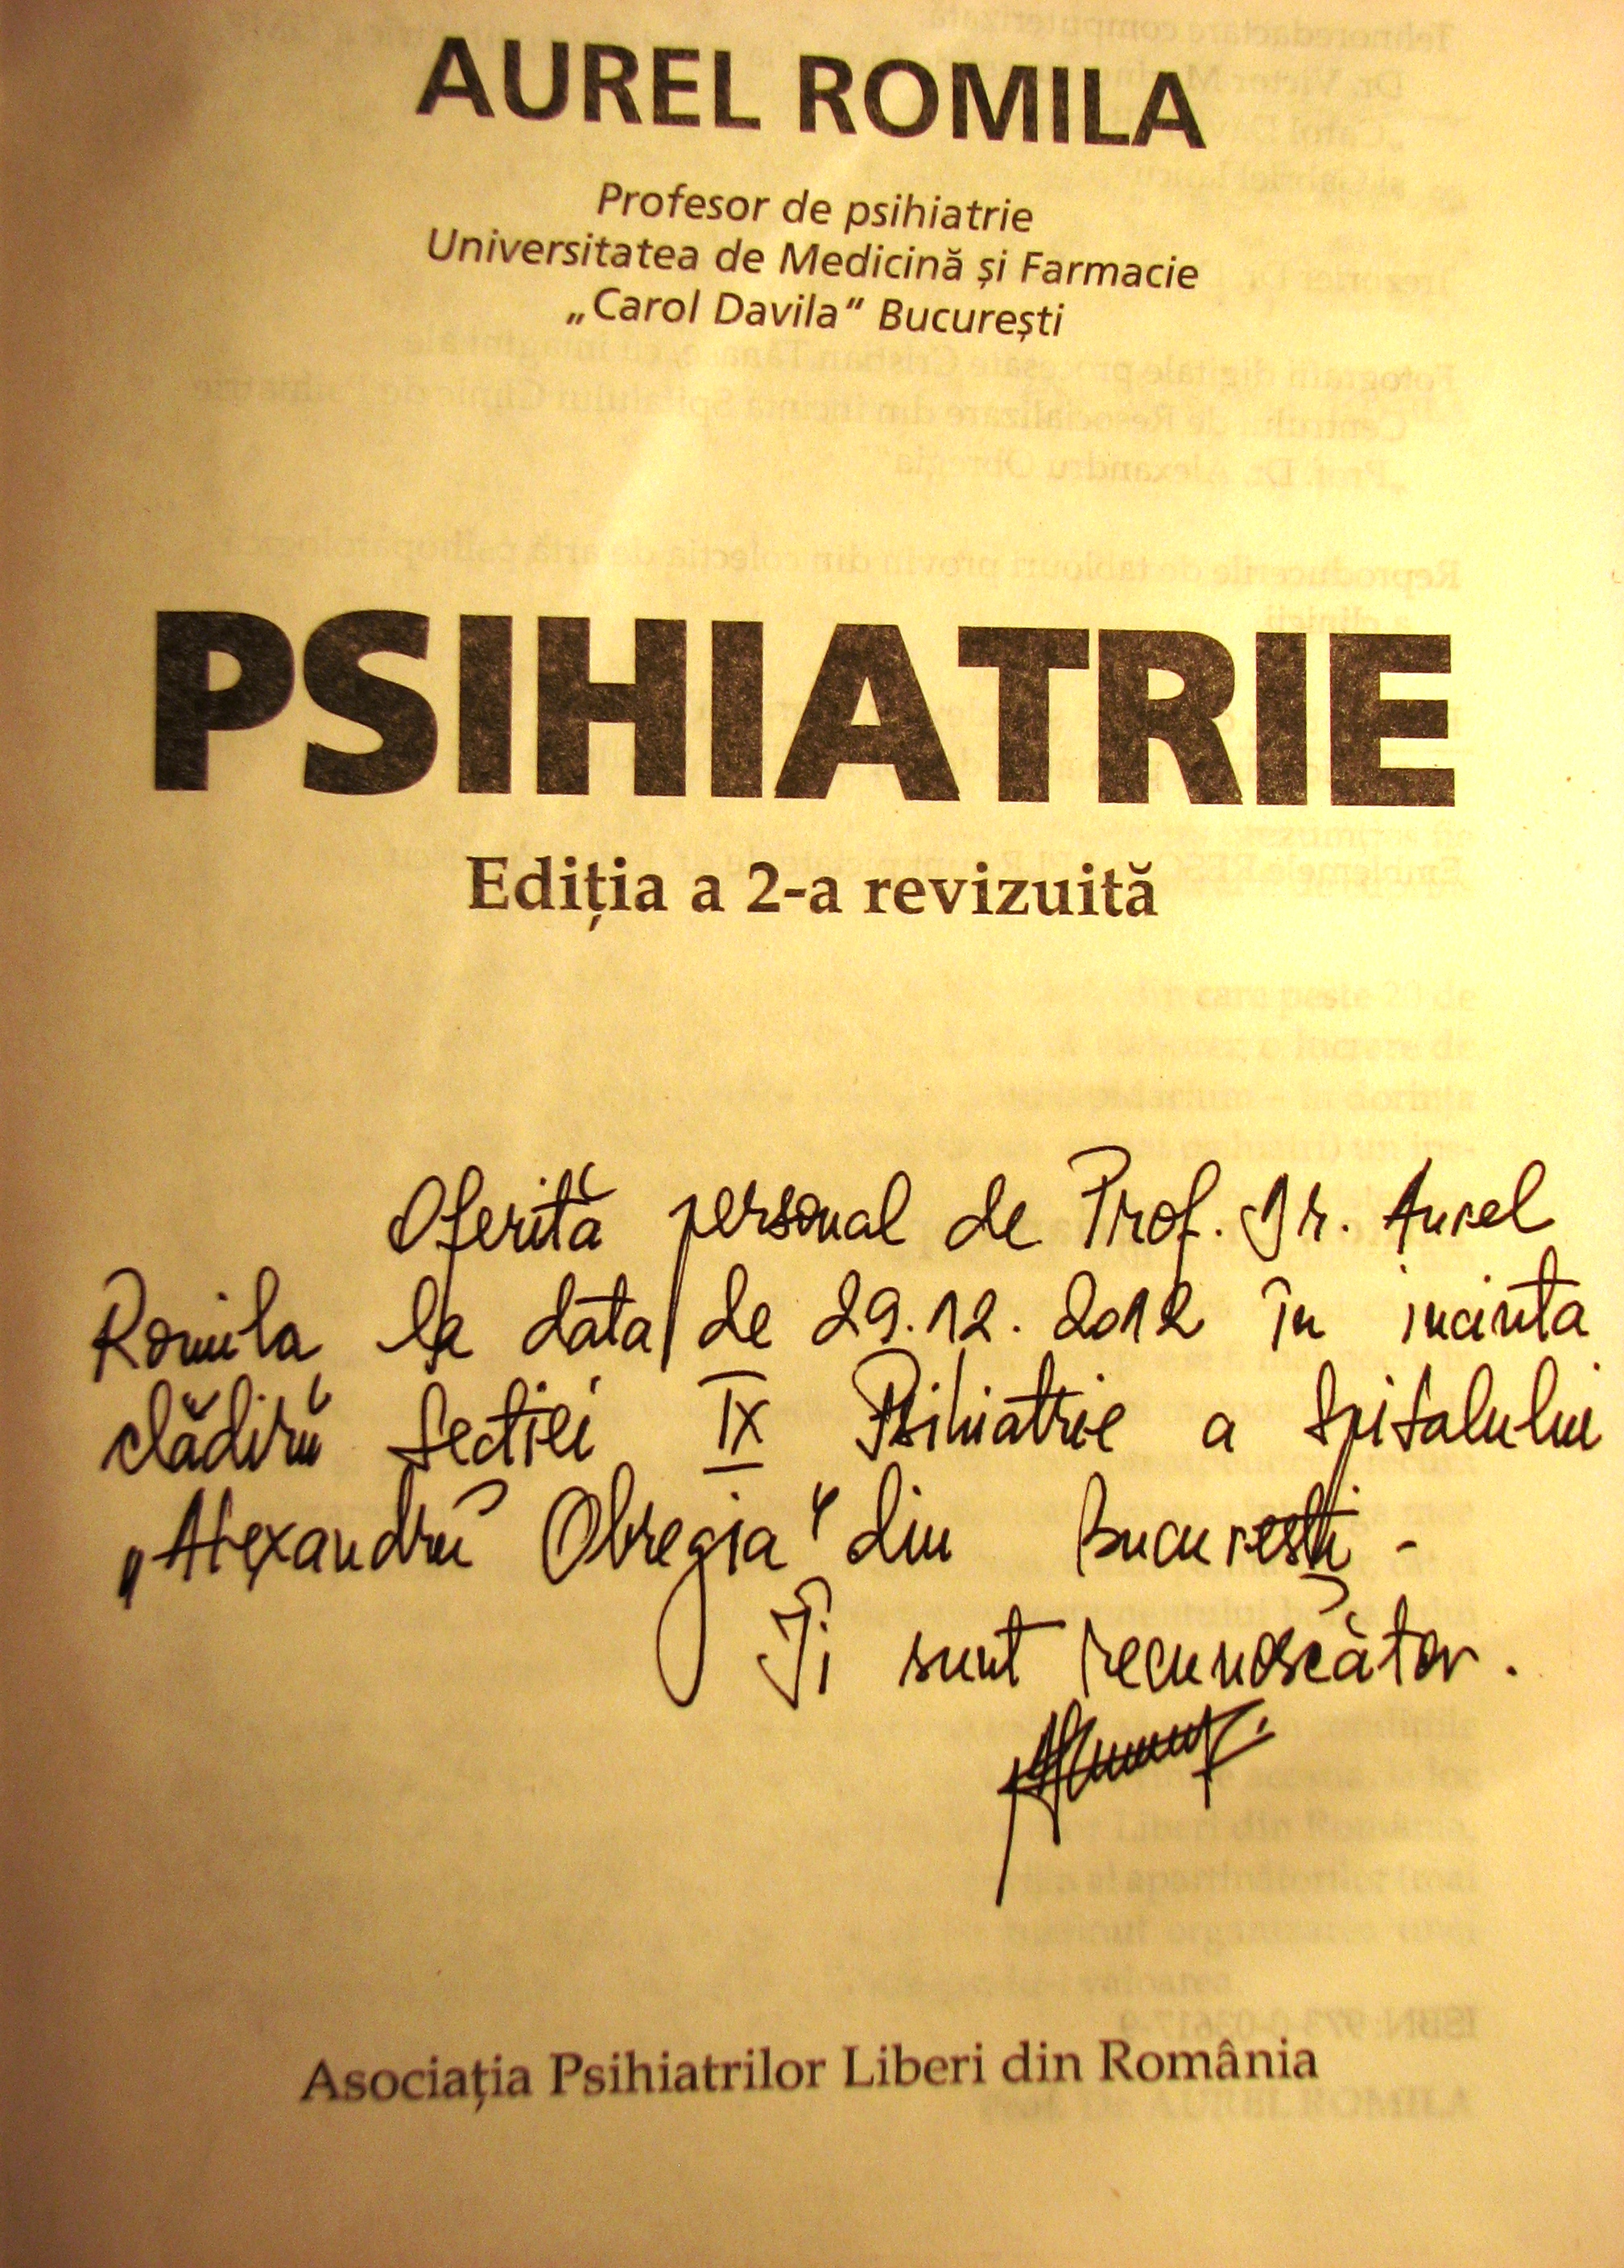 AUREL ROMILA
Profesor de psihiatrie
Universitatea de Medicină și Farmacie
„Carol Davila“ București
PSIHIATRIE
Ediția a 2-a revizuită
Oferită personal de Prof. Dr. Aurel
Romila la data de 29.12.2012 în incinta
clădirii Secției IX Psihiatrie a Spitalului
„Alexandru Obregia“ din București -
Îi sunt recunoscător.
Asociația Psihiatrilor Liberi din România